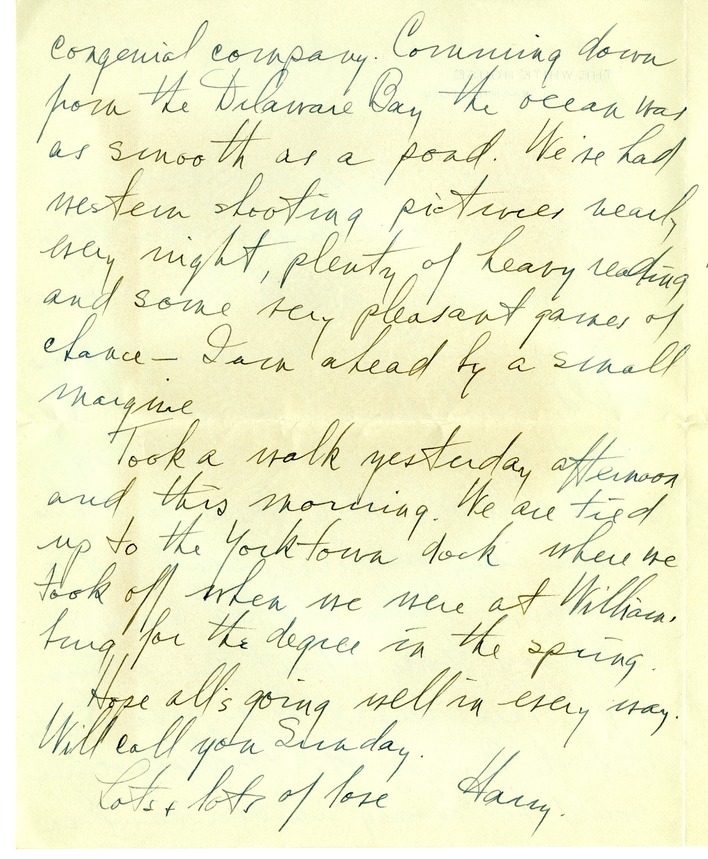 congenial company. Comming down
from the Delaware Bay the ocean was
as smooth as a pond. We've had
western shooting pictures nearly
every night, plenty of heavy reading
and some very pleasant games of
chance — I am ahead by a small
margine
Took a walk yesterday afternoon
and this morning. We are tied
up to the Yorktown dock where we
took off when we were at Williams-
burg for the degree in the spring.
Hope all's going well in every way.
Will call you Sunday.
Lots & lots of love Harry.